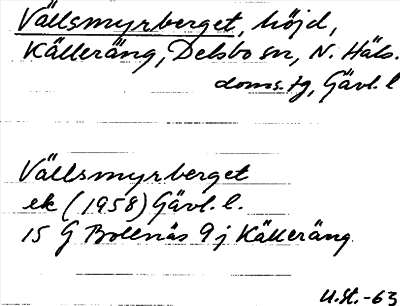 Vällsmyrberget, höjd,
Källeräng, Delsbo sn, N. Häls.
doms.tg, Gävl. l
Vällsmyrberget
ek (1958) Gävl. l.
15 G Bollnäs 9 j Källeräng
U.St.-63